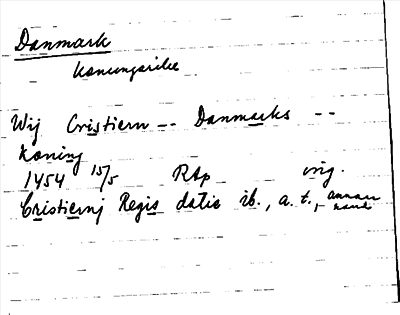 Danmark
konungarike
Wij Cristiern -- Danmarks --
koning
1454 15/5 RAp orig.
Cristiernj Regis datis ib., a. t., annan
hand